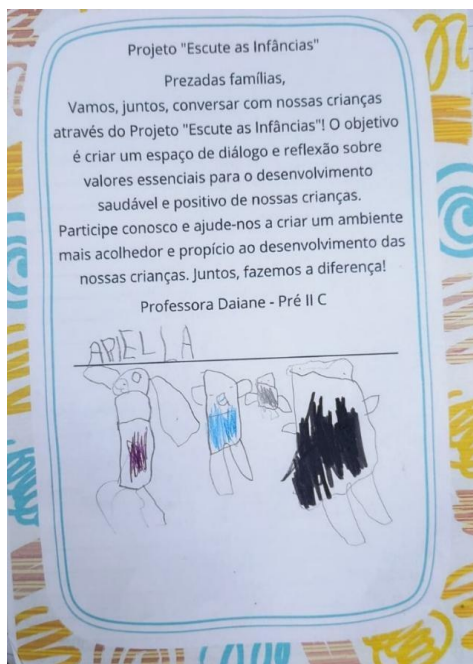 Projeto "Escute as Infâncias"
Prezadas famílias,
Vamos, juntos, conversar com nossas crianças
através do Projeto "Escute as Infâncias"! O objetivo
é criar um espaço de diálogo e reflexão sobre
valores essenciais para o desenvolvimento
saudável e positivo de nossas crianças.
Participe conosco e ajude-nos a criar um ambiente
mais acolhedor e propício ao desenvolvimento das
nossas crianças. Juntos, fazemos a diferença!
Professora Daiane - Pré II C
ARIELLA